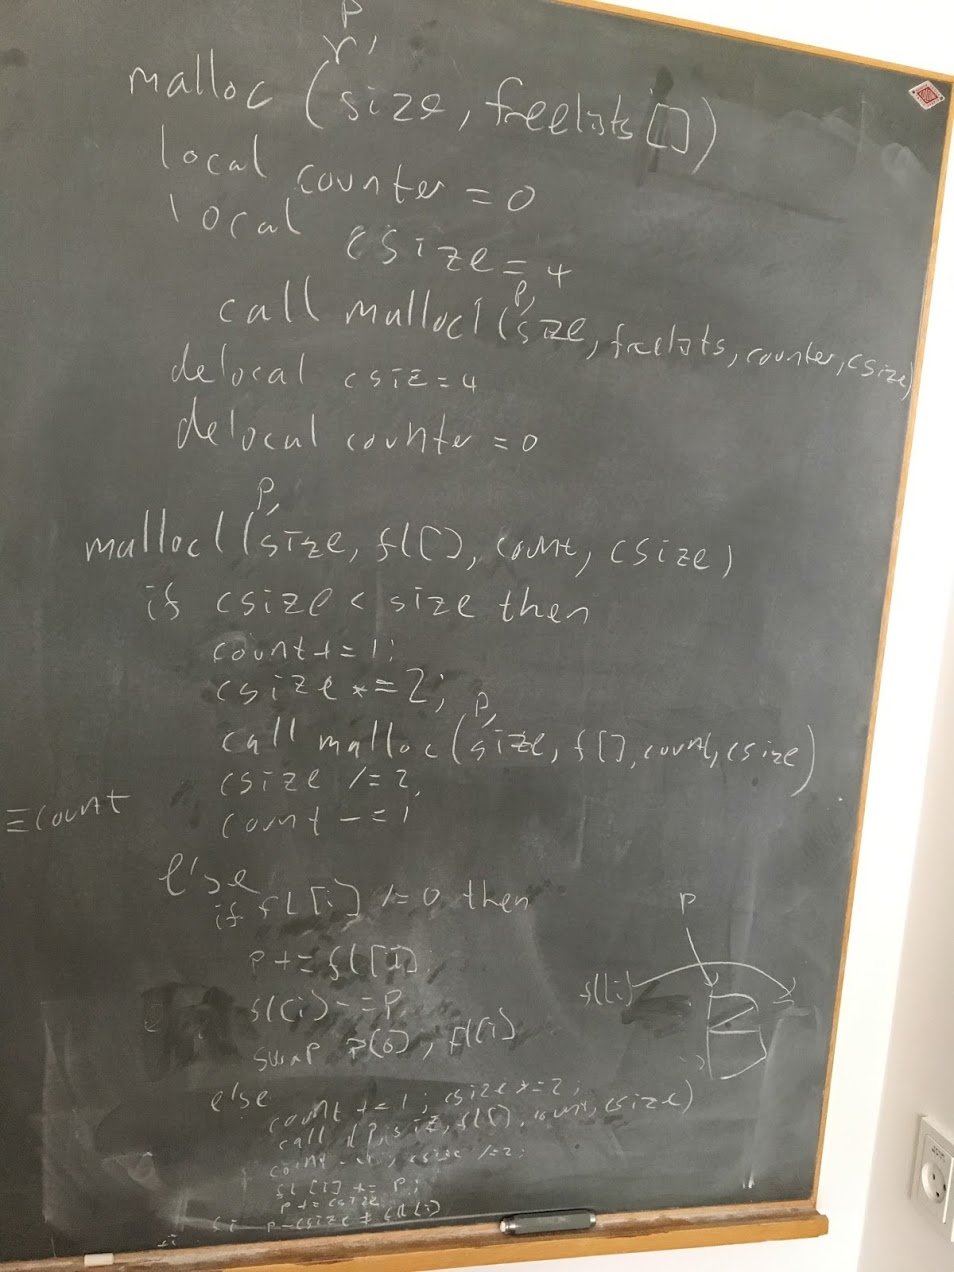 p
r,
malloc (size, freelists[])
local counter = 0
local csize = 4
p,
call malloc1(size, freelists, counter, csize)
delocal csiz=4
delocal counter = 0
p,
malloc1(size, fl[], count, csize)
if csize < size then
count += 1;
csize *= 2;
p,
call malloc(size, f[], count, csize)
csize /= 2,
≡count
count -= 1
else
if fl[i] /= 0 then
p += fl[i]
fl(i) -= p
swap p(0), fl(i)
p
fl(i)
else
count += 1; csize *= 2;
call (p, siz, fl(), count, csize)
count -= 1; csize /= 2;
fl[i] += p;
p += csize
fi p-csize ≠ fl(i)
fi